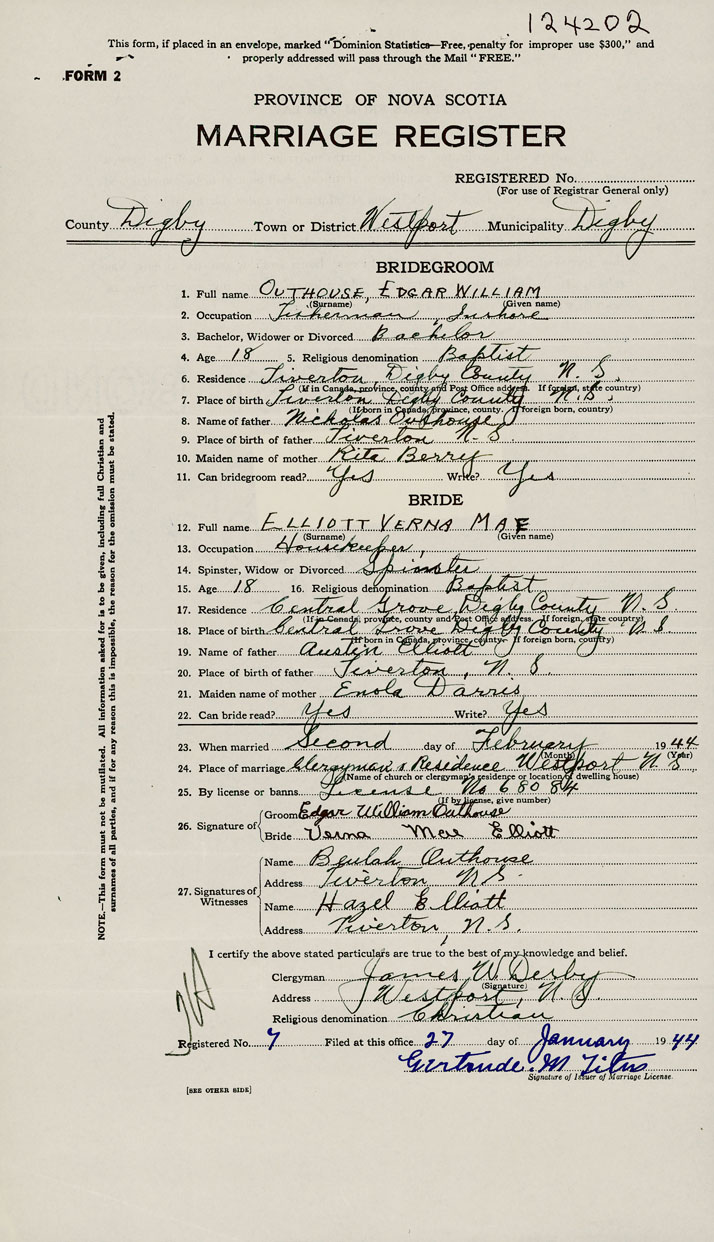 124202
This form, if placed in an envelope, marked "Dominion Statistics—Free, penalty for improper use $300," and
properly addressed will pass through the Mail "FREE."
FORM 2
PROVINCE OF NOVA SCOTIA
MARRIAGE REGISTER
REGISTERED No.
(For use of Registrar General only)
County Digby Town or District Westport Municipality Digby
BRIDEGROOM
1. Full name OUTHOUSE, EDGAR WILLIAM
(Surname) (Given name)
2. Occupation Fisherman, Inshore
3. Bachelor, Widower or Divorced Bachelor
4. Age 18 5. Religious denomination Baptist
6. Residence Tiverton, Digby County N. S.
(If in Canada, province, county and Post Office address. If foreign, state country)
7. Place of birth Tiverton Digby County N. S.
(If born in Canada, province, county. If foreign born, country)
8. Name of father Nicholas Outhouse
9. Place of birth of father Tiverton N. S.
10. Maiden name of mother Rita Berry
11. Can bridegroom read? Yes Write? Yes
BRIDE
12. Full name ELLIOTT VERNA MAE
(Surname) (Given name)
13. Occupation Housekeeper,
14. Spinster, Widow or Divorced Spinster
15. Age 18 16. Religious denomination Baptist
17. Residence Central Grove, Digby County N. S.
(If in Canada, province, county and Post Office address. If foreign, state country)
18. Place of birth Central Grove Digby County N S
(If born in Canada, province, county. If foreign born, country)
19. Name of father Austin Elliott
20. Place of birth of father Tiverton, N. S.
21. Maiden name of mother Enola Darris
22. Can bride read? Yes Write? Yes
23. When married Second day of February 1944
(Month) (Year)
24. Place of marriage Clergyman's Residence Westport N S
(Name of church or clergyman's residence or location of dwelling house)
25. By license or banns License No 68084
(If by license, give number)
26. Signature of
Groom Edgar William Outhouse
Bride Verna Mae Elliott
27. Signatures of Witnesses
Name Beulah Outhouse
Address Tiverton N S.
Name Hazel Elliott
Address Tiverton, N. S.
I certify the above stated particulars are true to the best of my knowledge and belief.
Clergyman James W. Derby
(Signature)
Address Westport, N. S.
Religious denomination Christian
Registered No. 7 Filed at this office 27 day of January 1944
Gertrude. M Titus
Signature of Issuer of Marriage License.
[SEE OTHER SIDE]
NOTE.—This form must not be mutilated. All information asked for is to be given, including full Christian and
surnames of all parties, and if for any reason this is impossible, the reason for the omission must be stated.